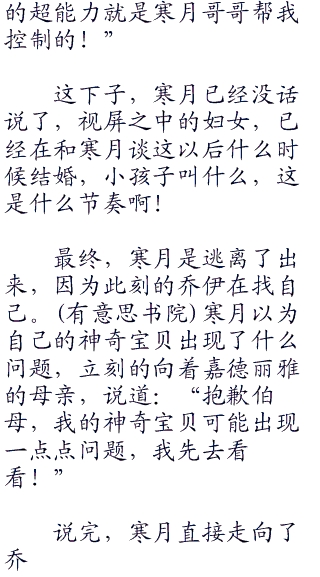 的超能力就是寒月哥哥帮我
控制的！”
这下子，寒月已经没话
说了，视屏之中的妇女，已
经在和寒月谈这以后什么时
候结婚，小孩子叫什么，这
是什么节奏啊！
最终，寒月是逃离了出
来，因为此刻的乔伊在找自
己。(有意思书院)寒月以为
自己的神奇宝贝出现了什么
问题，立刻的向着嘉德丽雅
的母亲，说道：“抱歉伯
母，我的神奇宝贝可能出现
一点点问题，我先去看
看！”
说完，寒月直接走向了
乔